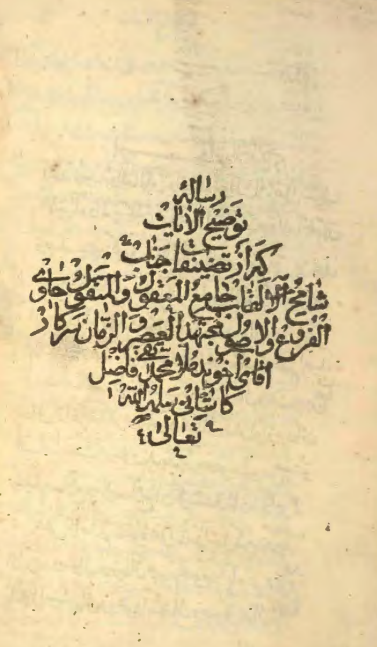 رسالهٔ
توضیح الآیات
که از تصنیفات جناب
شامخ الالقاب جامع المعقول والمنقول حاوی
الفروع والاصول مجتهد العصر والزمان سرکار
آقای آخوند ملا محمد فاضل
کاشانی سلمه الله
تعالی